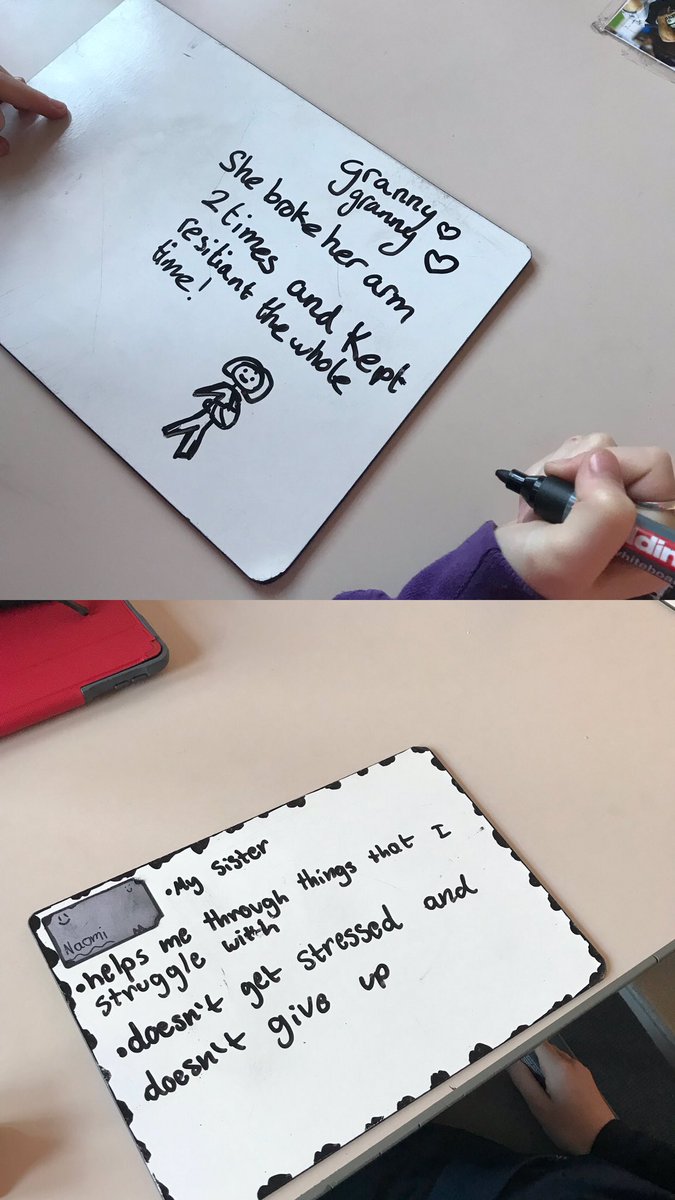 Granny ♡
granny ♡
She broke her arm
2 times and Kept
resiliant the whole
time!
Naomi
•My sister
•helps me through things that I
struggle with
•doesn't get stressed and
doesn't give up